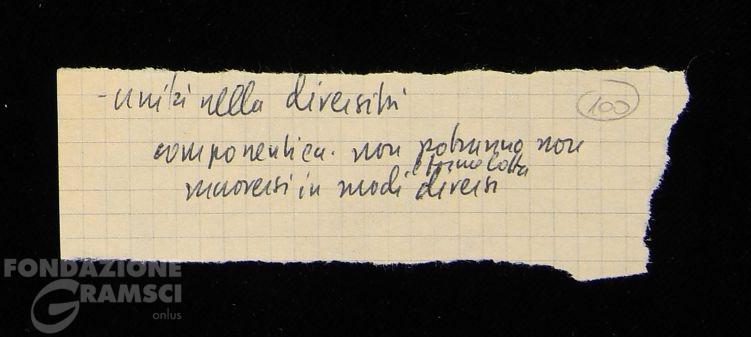 - unità nella diversità
100
componentica. non potranno non
e forme lotta
muoversi in modi diversi
FONDAZIONE
GRAMSCI
onlus